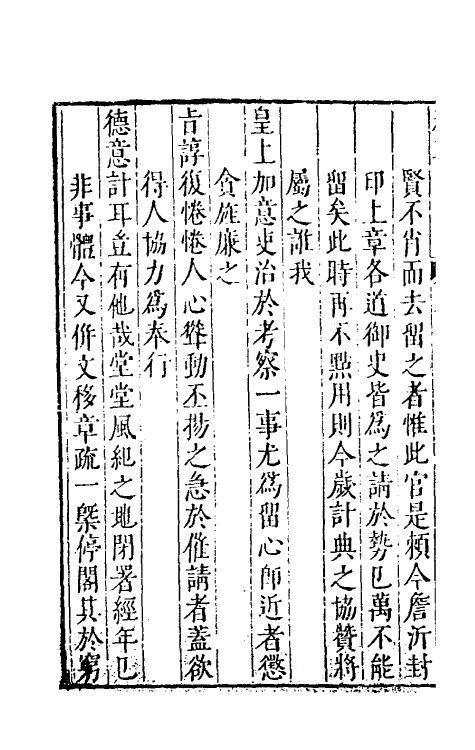 賢不肖而去留之者惟此官是頼今詹沂封
印上章各道御史皆爲之請於勢已萬不能
留矣此時再不㸃用則今歲計典之協贊將
屬之誰我
皇上加意吏治於考察一事尤爲留心卽近者懲
貪旌廉之
吉諄復惓惓人心聳動丕揚之急於催請者葢欲
得人協力爲奉行
德意計耳豈有他哉堂堂風紀之地閉署經年已
非事體今又併文移章疏一槩停閣其於